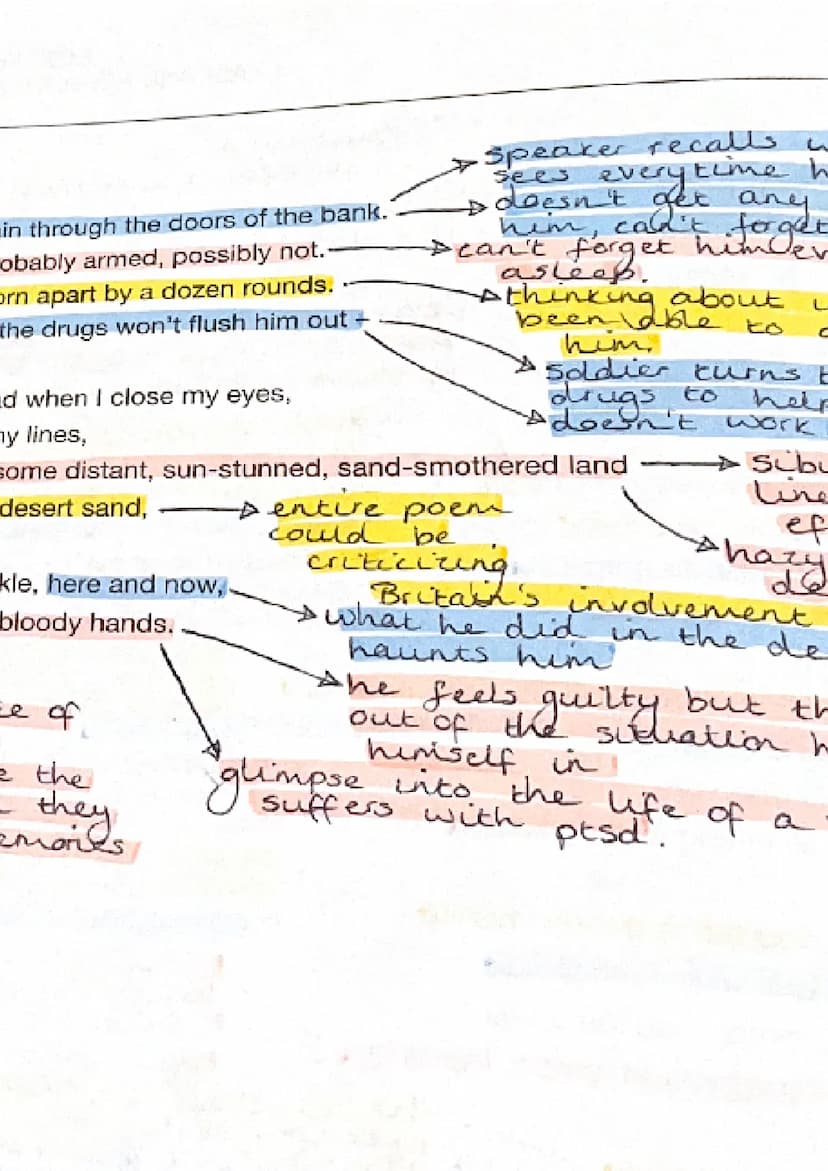 speaker recalls
sees everytime
in through the doors of the bank.
doesn't get any
him, can't forget
obably armed, possibly not.
can't forget him
asleep.
orn apart by a dozen rounds.
thinking about
been able to
him.
the drugs won't flush him out +
soldier turns
drugs to help
doesn't work
d when I close my eyes,
y lines,
some distant, sun-stunned, sand-smothered land
sibu
line
ef
hazy
de
desert sand,
entire poem
could be
criticizing
Britain's involvement
kle, here and now,
what he did in the de
haunts him
bloody hands.
he feels guilty but th
out of the situation h
himself in
ce of
glimpse into the life of a
suffers with
ptsd.
e the
they
emories